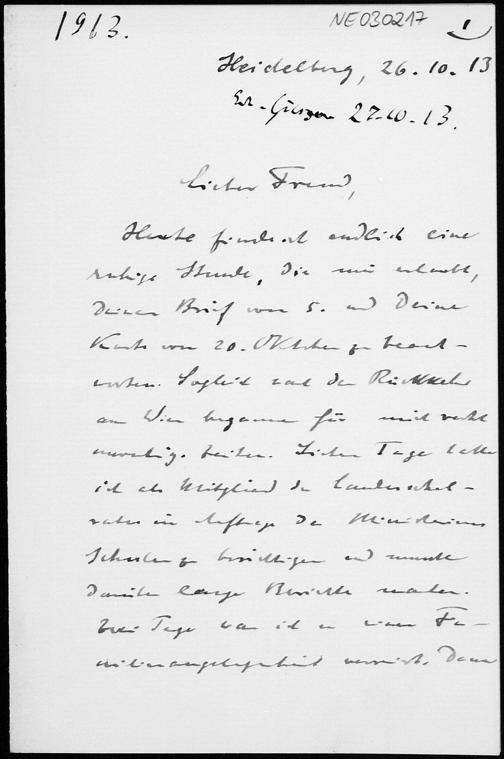 1913.
NE030217
1
Heidelberg, 26.10.13
27.10.13.
Lieber Freund,
Heute finde ich endlich eine
ruhige Stunde, die mir erlaubt,
Deinen Brief vom 5. und Deine
Karte vom 20. Oktober zu beant-
worten. Sogleich nach der Rückkehr
aus Wien begannen für mich recht
unruhige Zeiten. Sieben Tage hatte
ich als Mitglied des Landesschul-
rates im Auftrage des Ministeriums
Schulen zu besichtigen und musste
darüber lange Berichte machen.
Zwei Tage war ich in einer Fa-
milienangelegenheit verreist. Dann